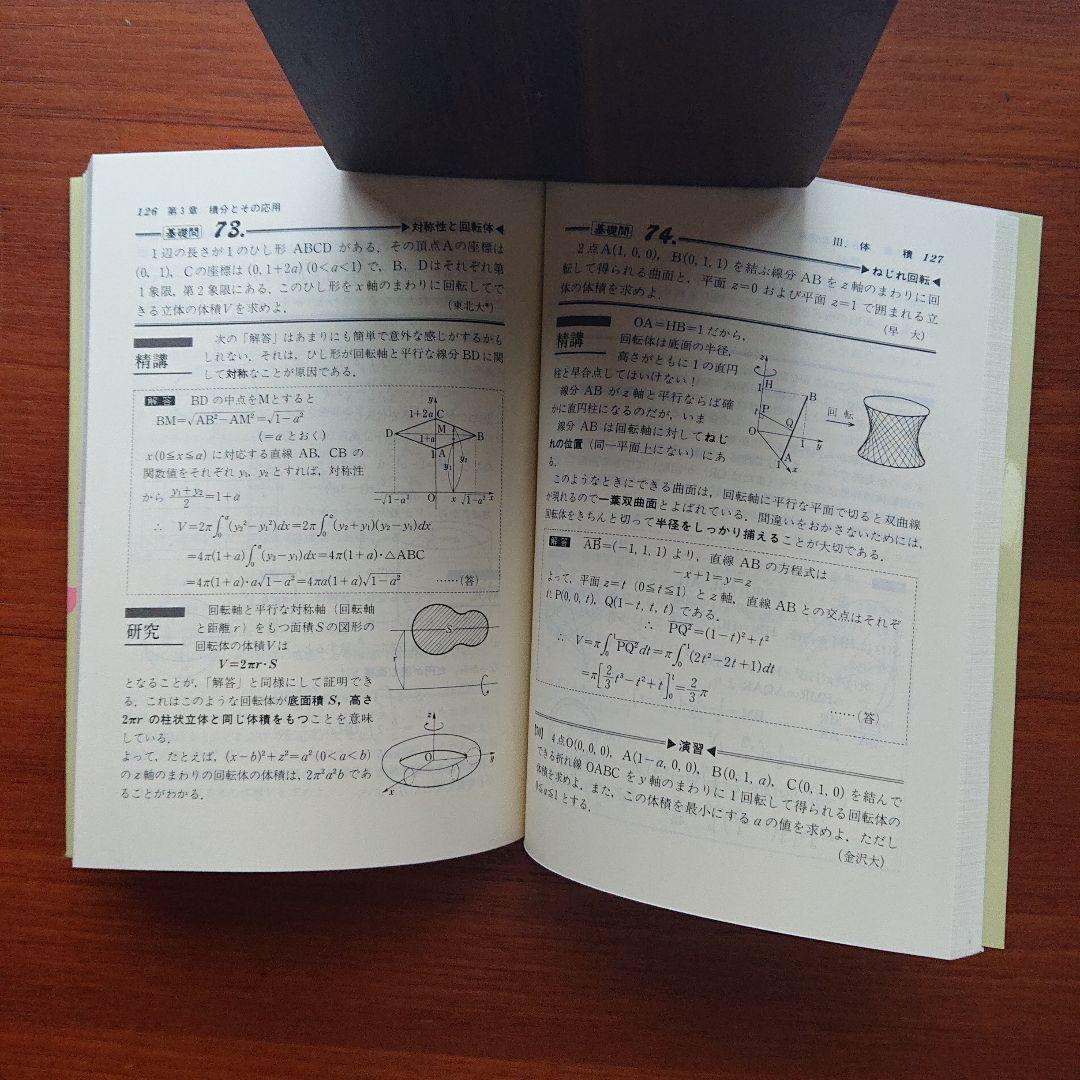 126 第3章 積分とその応用
基礎問 73. ▶対称性と回転体◀
1辺の長さが1のひし形 ABCD がある.その頂点Aの座標は
(0, 1), Cの座標は (0, 1+2a) (0<a<1) で, B, Dはそれぞれ第
1象限, 第2象限にある.このひし形をx軸のまわりに回転してで
きる立体の体積Vを求めよ. (東北大*)
精講
次の「解答」はあまりにも簡単で意外な感じがするかも
しれない.それは,ひし形が回転軸と平行な線分BDに関
して対称なことが原因である.
解答 BDの中点をMとすると
BM=√AB²−AM²=√1−a²
(=α とおく)
x(0≦x≦α) に対応する直線 AB, CBの
関数値をそれぞれ y₁, y₂ とすれば, 対称性
から (y₁+y₂)/2=1+a
∴ V=2π∫₀^α(y₂²−y₁²)dx=2π∫₀^α(y₂+y₁)(y₂−y₁)dx
=4π(1+a)∫₀^α(y₂−y₁)dx=4π(1+a)·△ABC
=4π(1+a)·a√1−a²=4πa(1+a)√1−a² ……(答)
y
1+2a C
M
D 1+a B
A
1 y₁ y₂
−√1−a² O x √1−a² x
研究
回転軸と平行な対称軸(回転軸
と距離r)をもつ面積Sの図形の
回転体の体積Vは
V=2πr·S
となることが,「解答」と同様にして証明でき
る.これはこのような回転体が底面積 S, 高さ
2πr の柱状立体と同じ体積をもつことを意味
している.
よって, たとえば, (x−b)²+z²=a²(0<a<b)
のz軸のまわりの回転体の体積は, 2π²a²b であ
ることがわかる.
S
r
z
O
y
x
III. 体 積 127
基礎問 74. ▶ねじれ回転◀
2点A(1, 0, 0), B(0, 1, 1) を結ぶ線分 AB をz軸のまわりに回
転して得られる曲面と, 平面 z=0 および平面 z=1 で囲まれる立
体の体積を求めよ. (早 大)
精講
OA=HB=1だから,
回転体は底面の半径,
高さがともに1の直円
柱と早合点してはいけない!
線分 AB がz軸と平行ならば確
かに直円柱になるのだが, いま
線分 AB は回転軸に対してねじ
れの位置(同一平面上にない)にあ
る.
z
H
1 B
P Q
O 1 y
A
1 x
回 転
このようなときにできる曲面は, 回転軸に平行な平面で切ると双曲線
が現れるので一葉双曲面とよばれている.間違いをおかさないためには,
回転体をきちんと切って半径をしっかり捕えることが大切である.
解答 AB=(−1, 1, 1) より, 直線 AB の方程式は
−x+1=y=z
よって, 平面 z=t (0≦t≦1) とz軸, 直線 ABとの交点はそれぞ
れ P(0, 0, t), Q(1−t, t, t) である.
∴ PQ²=(1−t)²+t²
∴ V=π∫₀¹PQ²dt=π∫₀¹(2t²−2t+1)dt
=π[2/3 t³−t²+t]₀¹=2/3 π ……(答)
▶演習◀
4点O(0, 0, 0), A(1−a, 0, 0), B(0, 1, a), C(0, 1, 0) を結んで
できる折れ線 OABC をy軸のまわりに1回転して得られる回転体の
体積を求めよ. また, この体積を最小にするaの値を求めよ. ただし
0≦a≦1とする. (金沢大)